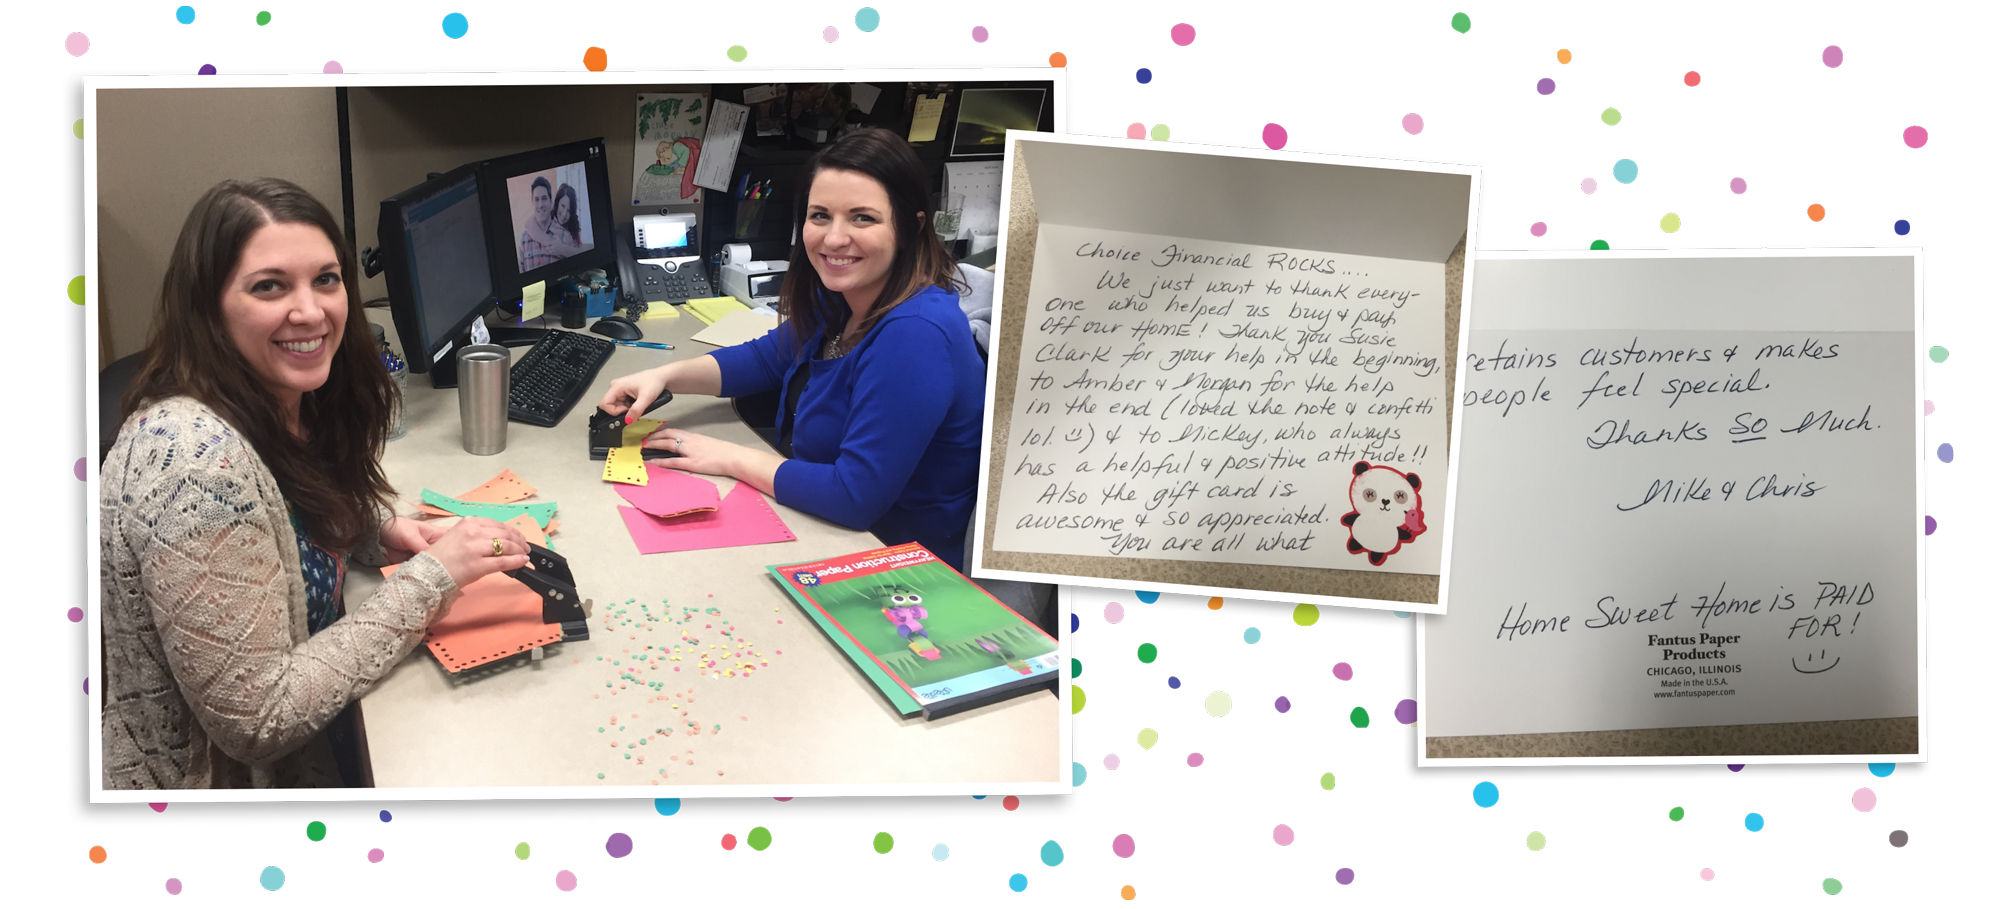 Construction Paper
48
Choice Financial ROCKS....
We just want to thank every-
one who helped us buy & pay
off our HOME! Thank you Susie
Clark for your help in the beginning,
to Amber & Morgan for the help
in the end (loved the note & confetti
lol. ☺) & to Mickey, who always
has a helpful & positive attitude!!
Also the gift card is
awesome & so appreciated.
You are all what
retains customers & makes
people feel special.
Thanks SO Much.
Mike & Chris
Home Sweet Home is PAID
FOR!
Fantus Paper
Products
CHICAGO, ILLINOIS
Made in the U.S.A.
www.fantuspaper.com